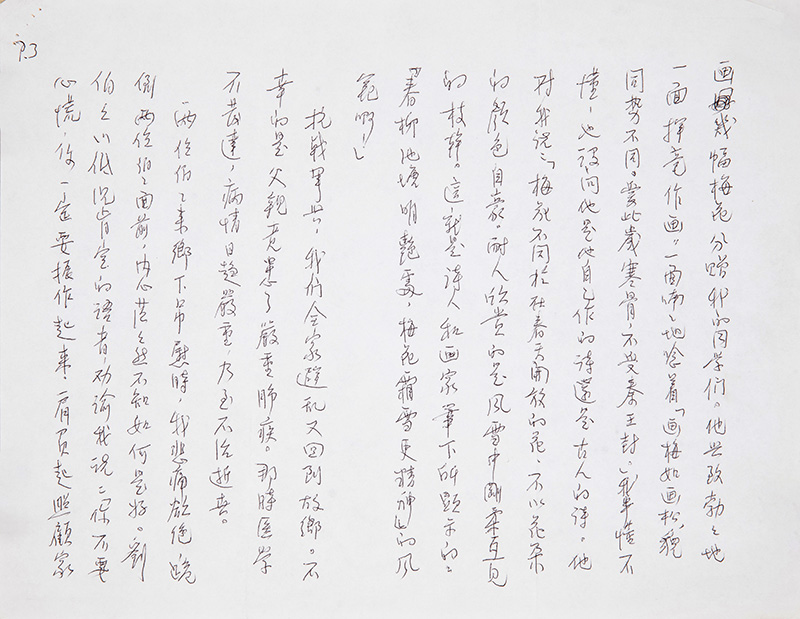 P.3
画幾幅梅花分贈我的同学們。他興致勃々地
一面揮毫作画,一面喃々地唸着「画梅如画松,貌
同势不同。愛此歲寒骨,不受秦王封」我半懂不
懂,也沒问他是他自己作的诗還是古人的诗。他
对我说:「梅花不同於在春天開放的花,不以花朵
的顏色自豪。耐人欣赏的是風雪中剛柔互見
的枝幹。這就是诗人和画家筆下所顯示的:
『春柳池塘明艷處,梅花霜雪更精神』的風
範啊!」
抗戰軍兴,我們全家避乱又回到故鄉。不
幸的是父親竟患了嚴重肺疾。那時医学
不发達,病情日趋嚴重,乃至不治逝去。
两位伯々来鄉下吊慰時,我悲痛欲绝跪
倒两位伯々面前,內心茫々然不知如何是好。劉
伯々以低沉肯定的语音劝谕我说:「你不要
心慌,你一定要振作起来,肩負起照顧家